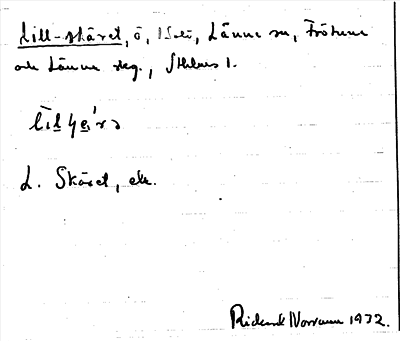 Lill-skäret, ö, Länna sn, Frötuna
och Länna skg., Sthlms l.
L. Skäret, ek.
Rickard Norrman 1932.